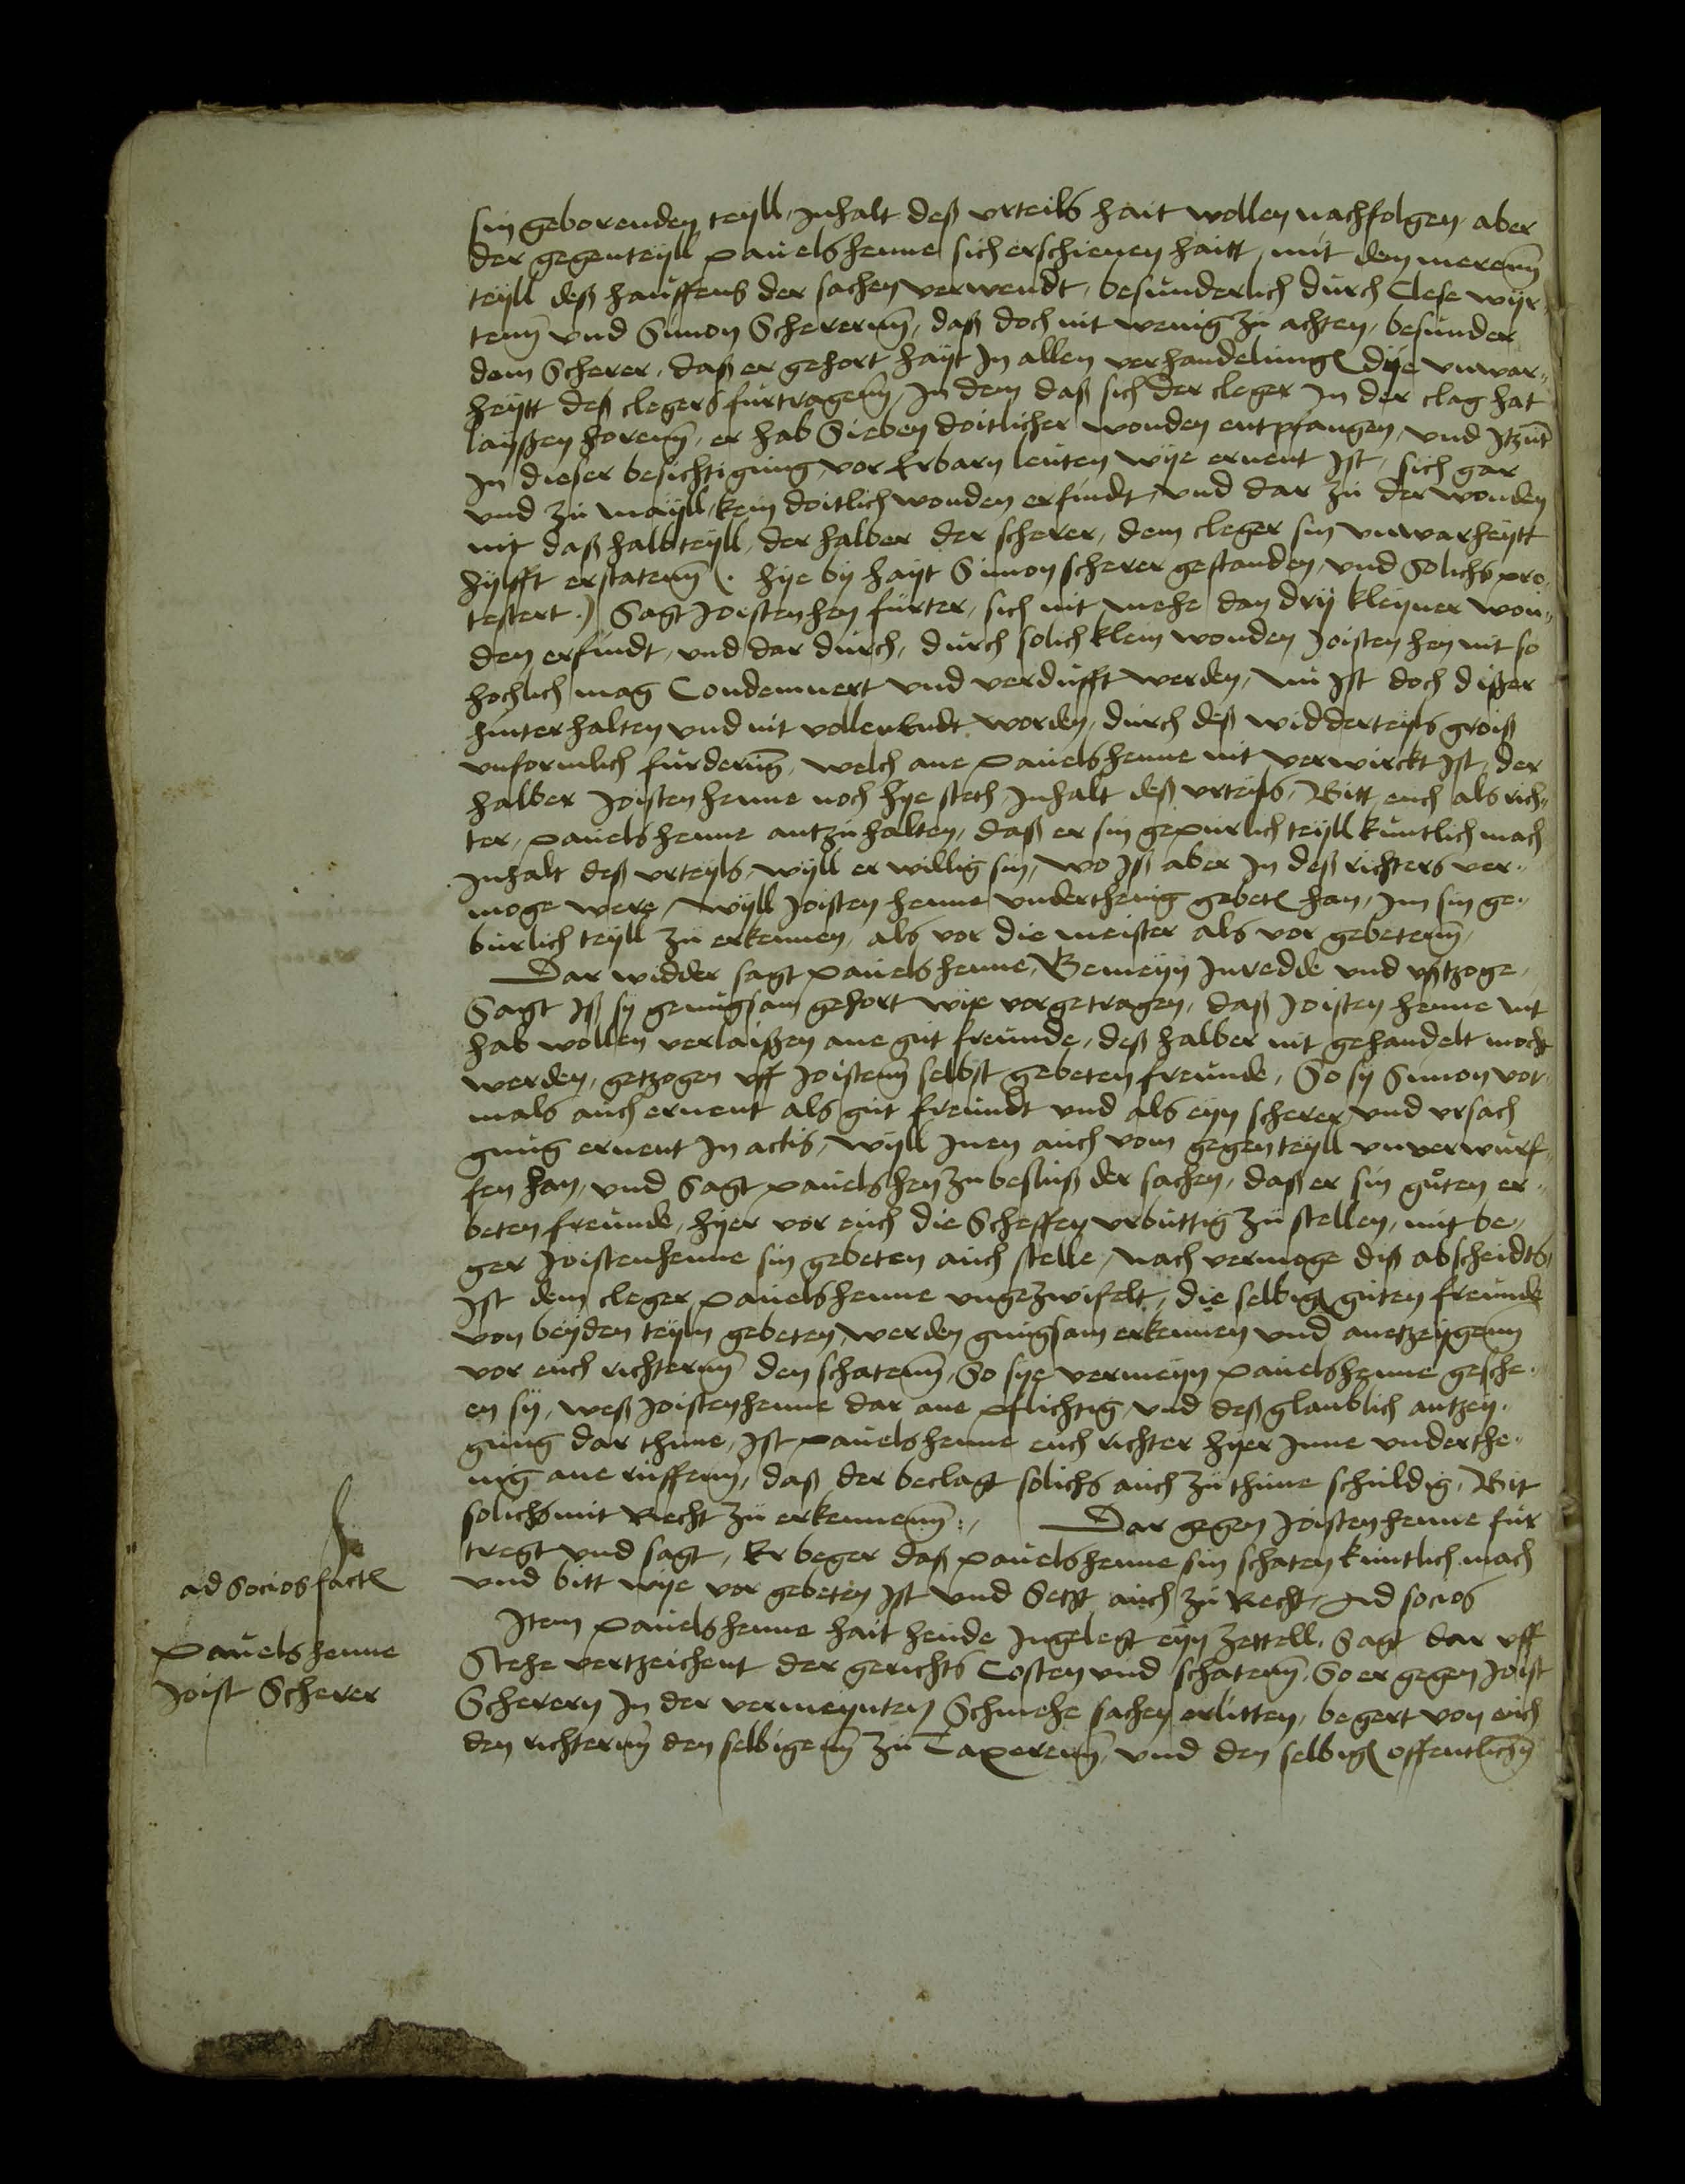 sin geborenden teyll, Inhalt deß vrteils hait wollen nachfolgen, aber
der gegenteyll pauelshenne sich erschienen haitt, mit den merenn
teyll deß hauffens der sachen verwendt, besunderlich durch Clese wyr¬
tenn vnd Simon Scherernn, daß doch nit wenig zu achten, besunder
dem Scherer, daß er gehort hayt In allen verhandelung dye vnwar¬
heytt deß clegers furtragenn, In dem daß sich der cleger In der clag hat
layßen horenn, er hab Sieben doitlicher wonden entpfangen, vnd Itzunt
In dieser besichtigung, vor Erbarn leuten wye ernent Ist, sich gar
vnd zu mayll, kein doitlich wonden erfindt, vnd dar zu der wonden
nit daß halbteyll, der halber der scherer, dem cleger sin vnwarheytt
hylfft erstatenn (. hye by hayt Simon scherer gestanden, vnd Solichs pro¬
testert.) Sagt Joistenhen furter, sich nit mehe dan dry kleyner won¬
den erfindt, vnd dar durch, durch solich klein wonden Joisten hen nit so
hochlich mag Condemnert vnd verdufft werden, Nu Ist doch dißer
hinterhalten vnd nit vollenEndt worden, durch deß widderteyls groiß
vnformlich furderung, welch ane pauelshenne nit verwirckt Ist, der
halber Joisten henne noch hye steth, Inhalt deß vrteyls, Bitt euch als rich¬
ter, pauelshenne antzuhalten, daß er sin gepurlich teyll kuntlich mach
Inhalt deß vrteyls, wyll er willig sin, wo Iß aber In deß richters ver¬
moge were, wyll Joisten henne vnderthenig gebeten han, Im sin ge¬
burlich teyll zu erkennen, als vor die meister als vor gebetenn,
Dar widder sagt pauelshenne, Gemeyn Inredde vnd vßtzoge,
Sagt Iß sy genungsam gehort wye vorgetragen, daß Joisten henne nit
hab wollen verlaißen ane gut freunde, deß halber nit gehandelt mocht
werden, getzogen vff Joistenn selbst gebeten freunde, So sy Simon vor¬
mals auch ernent als gut freundt vnd als eyn scherer, vnd vrsach
gnug ernent In actis, wyll Inen auch vom gegenteyll vnverwurf¬
fen han, vnd Sagt pauelshen zu besluß der sachen, daß er sin guten er¬
beten freunde, hyer vor euch die Scheffen vrbuttig zu stellen, mit be¬
ger Joistenhenne sin gebeten auch stelle, nach vermoge diß abscheidts,
Ist dem cleger pauelshenne vngezwifelt, die selbig guten freunde
von beyden teyln gebeten, werden gnugsam erkennen vnd anetzeygenn
vor euch richternn den schatenn, So sye vermeyn pauelshenne gesche¬
en sy, weß Joistenhenne dar ane pflichtig, vnd deß glaublich antzey¬
gung dar thune, Ist pauelshenne euch richter hyer Inne vnderthe¬
nig ane ruffenn, daß der beclagt solichs auch zu thune schuldig, Bit
solichs mit Recht zu erkennenn:, Dar gegen Joistenhenne fur
tregt vnd sagt, Er beger daß pauelshenne sin schaten kuntlich mach
und bitt wye vor gebeten Ist vnd Setzt auch zu Recht, Ad socios
ad socios fact
Item pauelshenne hait heude Ingelegt eyn zettell, Sagt dar vff
Pauelshenne
Stehe vertzeichent der gerichts Costen vnd schatenn, So er gegen Joist
Joist Scherer
Scherern In der vermeynten Schmehe sachen erlitten, begert von euch
den richternn den selbigenn zu Taxerenn, vnd den selbig offentlichn